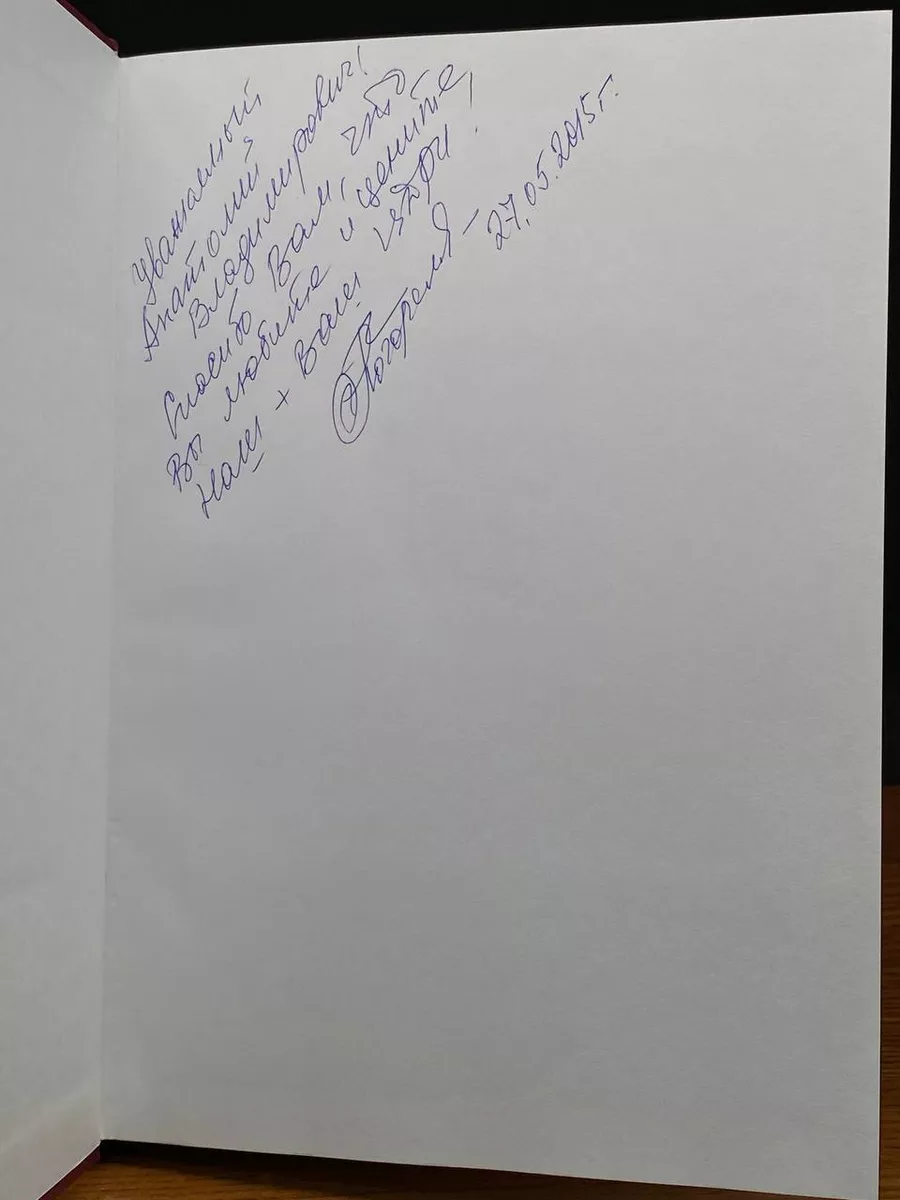 Уважаемый
Анатолий
Владимирович!
Спасибо Вам, что
Вы любите и цените,
Наш + Ваш !
27.05.2015г.